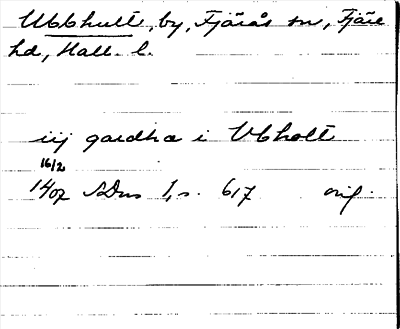 Ubbhult, by, Fjärås sn, Fjäre
hd, Hall. l.
iij gardha i Vbholt
16/2
1407 SDns 1, s. 617 orig.